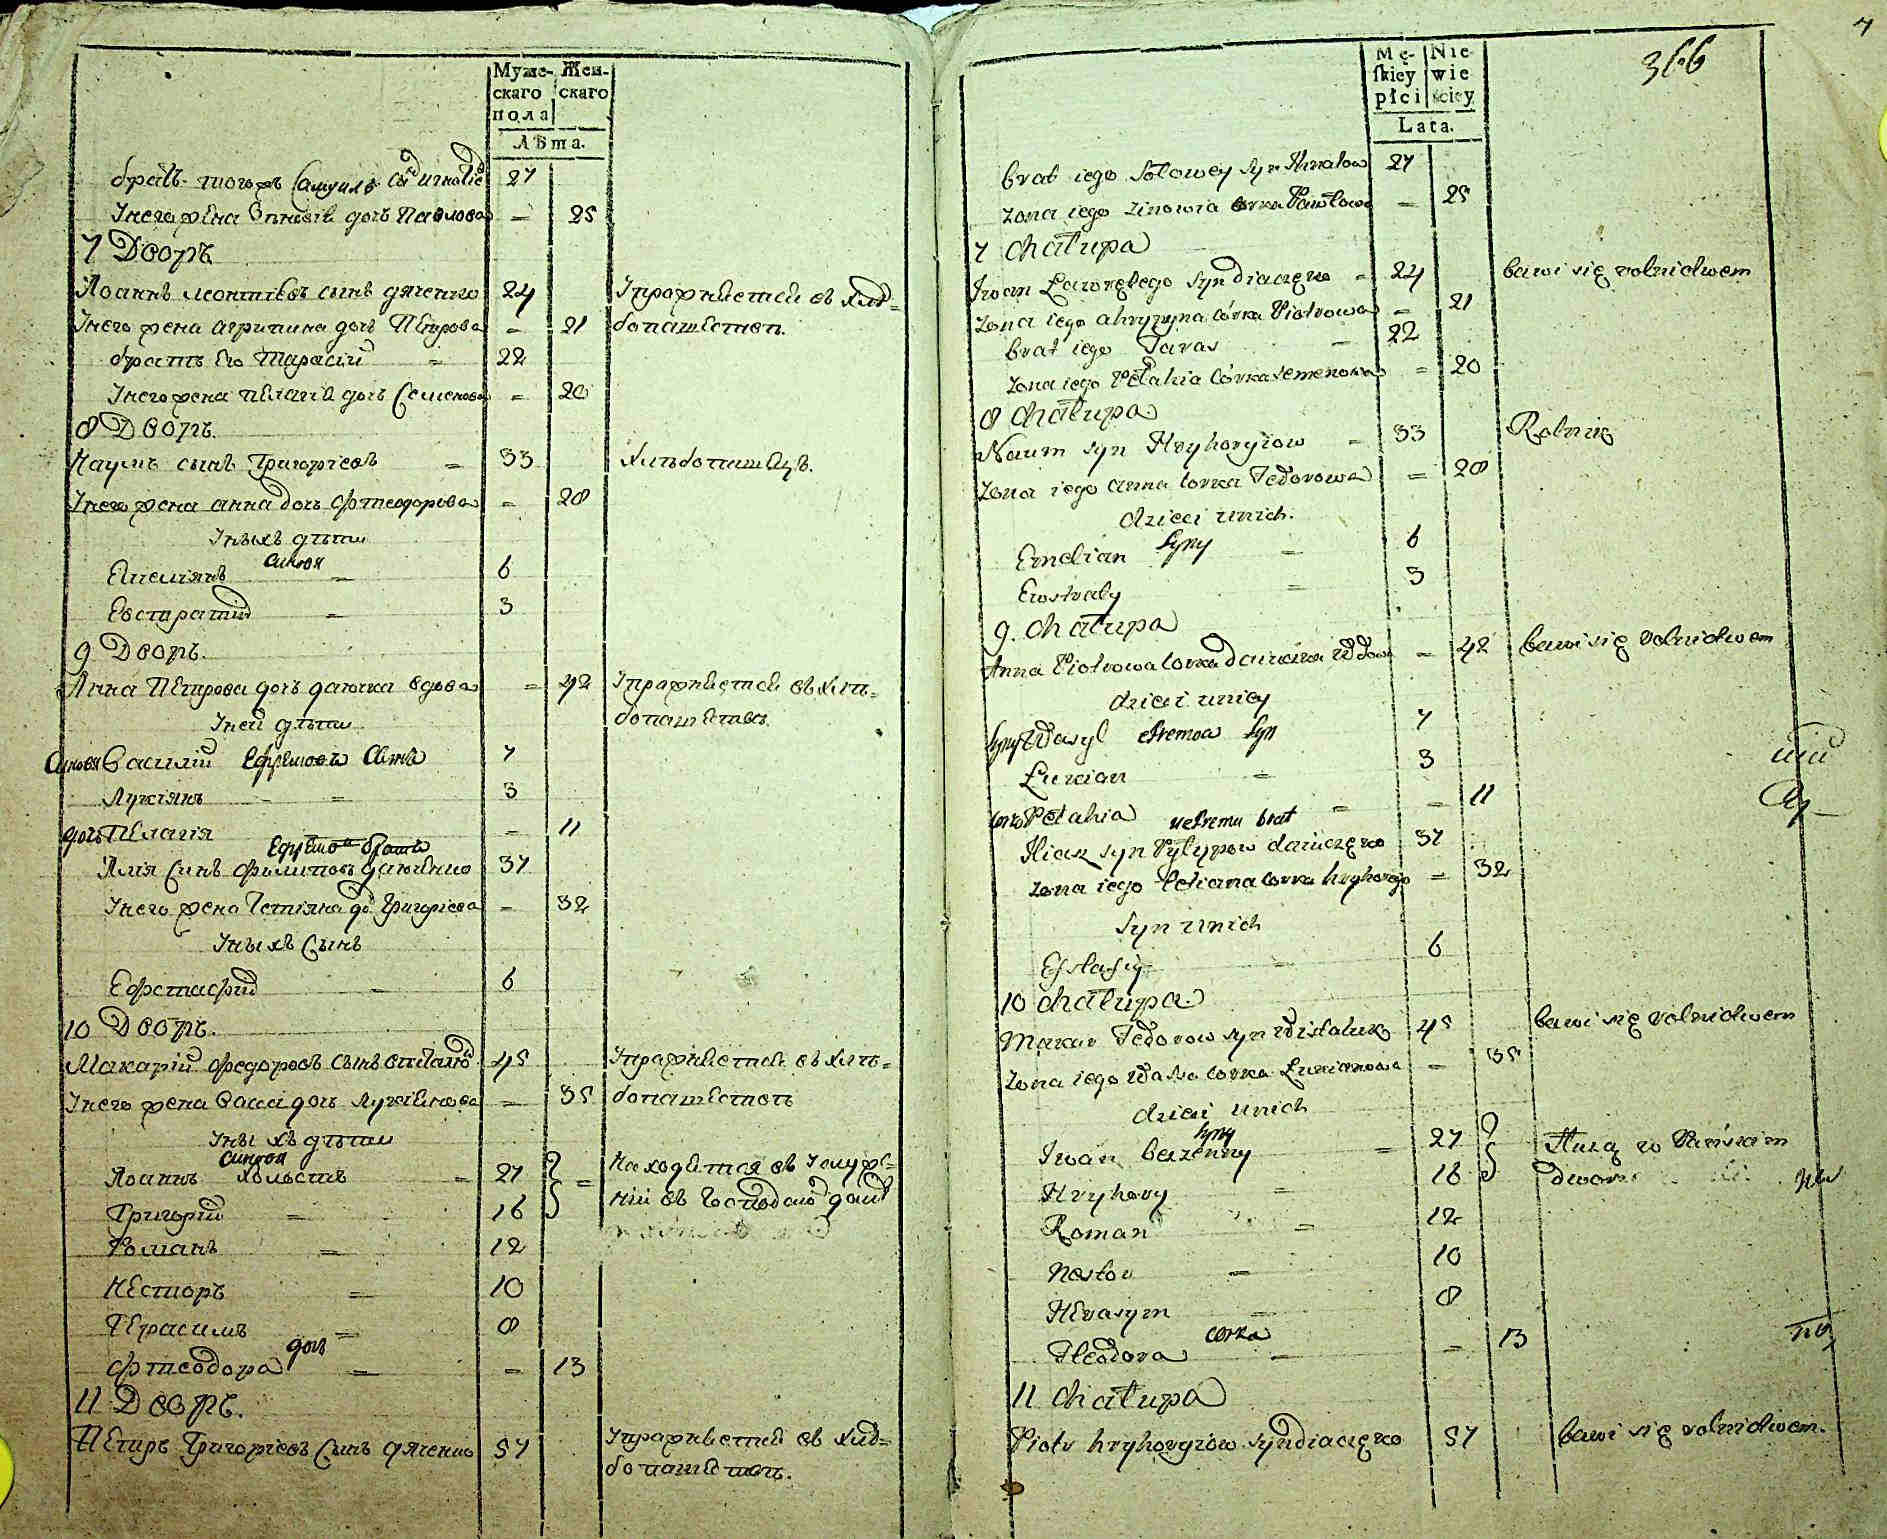 Муже-
скаго
пола
Жен-
скаго
Лѣта.
братъ того жъ Самуилъ 27
У него жена Зиновія дочь Павлова — 25
7 Дворъ
Иоаннъ Леонтіевъ сынъ дяченко 24 Упражняется въ хлѣ=
У него жена агрипина дочь Петрова — 21 бопашествѣ.
братъ его Тарасій = 22
У него жена Пелагія дочь Семенова = 20
8 Дворъ.
Наумъ сынъ Григоріевъ = 33 Хлѣбопашецъ.
У него жена анна дочь Фтеодорова = 28
У ныхъ дѣти
синовя
Емеліянъ = 6
Евстратий = 3
9 Дворъ.
Анна Петрова дочь даючка вдова = 42 Упражняется въ хлѣ=
У ней дѣти бопашествѣ.
Синовя Василій Ефремовъ Синъ 7
Лукіянъ = 3
дочь Пелагія — 11
Ефрема братъ
Илия Синъ Филиповъ даюченко 37
У него жена Тетіяна до: Григоріева — 32
У ныхъ Сынъ
Ефстафий 6
10 Дворъ.
Макарій Федоровъ сынъ 45 Упражняется въ хлѣ=
У него жена Васса дочь Лукіянова — 35 бопашествѣ
У ныхъ дѣти
синовя
Иоаннъ холостъ = 27 Находятся въ Услуже=
Григорий = 16 нии въ Господском домѣ
Романъ = 12
Несторъ = 10
Герасимъ = 8
дочь
Фтеодора = — 13
11 Дворъ.
Петръ Григоріевъ Сынъ дяченко 57 Упражняется въ хлѣ=
бопашествѣ.
7
366
Mę-
skiey
płci
Nie
wie
ściey
Lata.
brat iego Sołowey syn Hnatow 27
zona iego Zinowia corka Pawłowa — 25
7 chałupa
Iwan syn diaczęko = 24 bawi się rolnictwem
zona iego ahrypyna córka Piotrowa — 21
brat iego Taras — 22
zona iego Pełahia córka Semenowa = 20
8 chałupa
Naum syn Hryhoryiow = 33 Rolnik
zona iego anna corka Fedorowa = 28
dzieci unich.
Syny
Emelian = 6
Ewstraty = 3
9. chałupa
Anna Piotrowa corka wdowa — 42 bawi się rolnictwem
dzieci uniey
Syny Wasyl efremow Syn 7
Łukian = 3
corka Pełahia = — 11
uefrema brat
Iliasz syn Pylypow daiuczęko 37
zona iego Tetiana corka hryhorego = 32
Syn unich
Efstafiy 6
10 chałupa
Makar Fedorow syn 45 bawi się rolnictwem
zona iego Wassa corka Łukianowa — 35
dzieci unich
syny
Iwan bezzenny = 27 Służą w Pańskim
Hryhory = 16 dworze
Roman = 12
Nestor = 10
Herasym = 8
corka
Fteodora = — 13
11 chałupa
Piotr hryhoryiow syn diaczęko 57 bawi się rolnictwem.